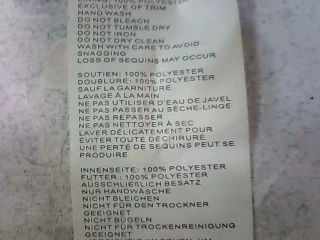 LINING: 100% POLYESTER
EXCLUSIVE OF TRIM
HAND WASH
DO NOT BLEACH
DO NOT TUMBLE DRY
DO NOT IRON
DO NOT DRY CLEAN
WASH WITH CARE TO AVOID
SNAGGING
LOSS OF SEQUINS MAY OCCUR
SOUTIEN: 100% POLYESTER
DOUBLURE: 100% POLYESTER
SAUF LA GARNITURE
LAVAGE À LA MAIN
NE PAS UTILISER D'EAU DE JAVEL
NE PAS PASSER AU SÈCHE-LINGE
NE PAS REPASSER
NE PAS NETTOYER À SEC
LAVER DÉLICATEMENT POUR
ÉVITER TOUTE DÉCHIRURE
UNE PERTE DE SEQUINS PEUT SE
PRODUIRE
INNENSEITE: 100% POLYESTER
FUTTER: 100% POLYESTER
AUSSCHLIEßLICH BESATZ
NUR HANDWÄSCHE
NICHT BLEICHEN
NICHT FÜR DEN TROCKNER
GEEIGNET
NICHT BÜGELN
NICHT FÜR TROCKENREINIGUNG
GEEIGNET